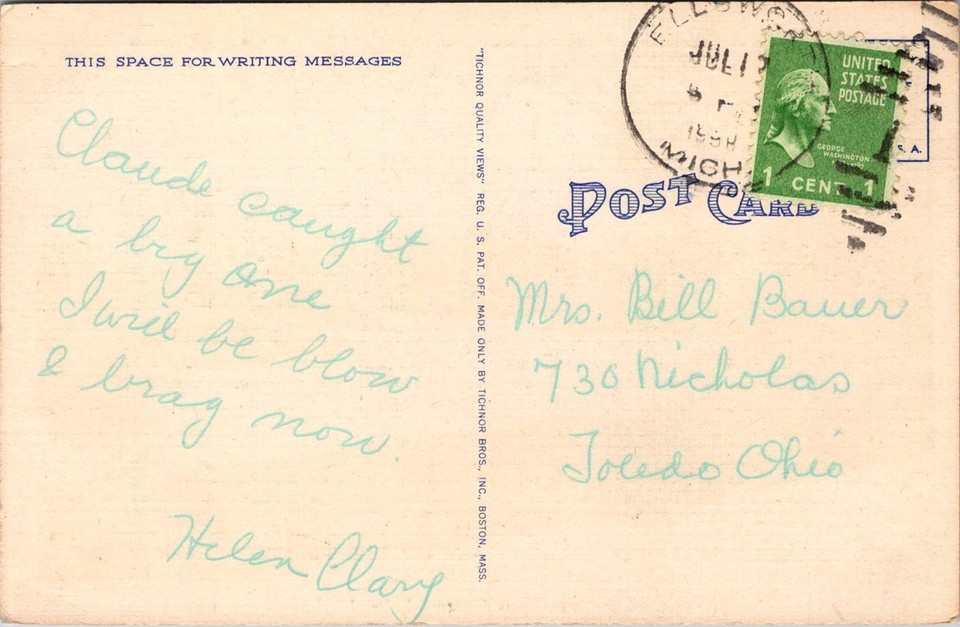 THIS SPACE FOR WRITING MESSAGES
Claude caught
a big one
I will be blow
& brag now.
Helen Clary
"TICHNOR QUALITY VIEWS" REG. U. S. PAT. OFF. MADE ONLY BY TICHNOR BROS., INC., BOSTON, MASS.
JUL 1
MICH
UNITED
STATES
POSTAGE
GEORGE
WASHINGTON
1 CENT 1
S. A.
POST CARD
Mrs. Bill Bauer
730 Nicholas
Toledo Ohio